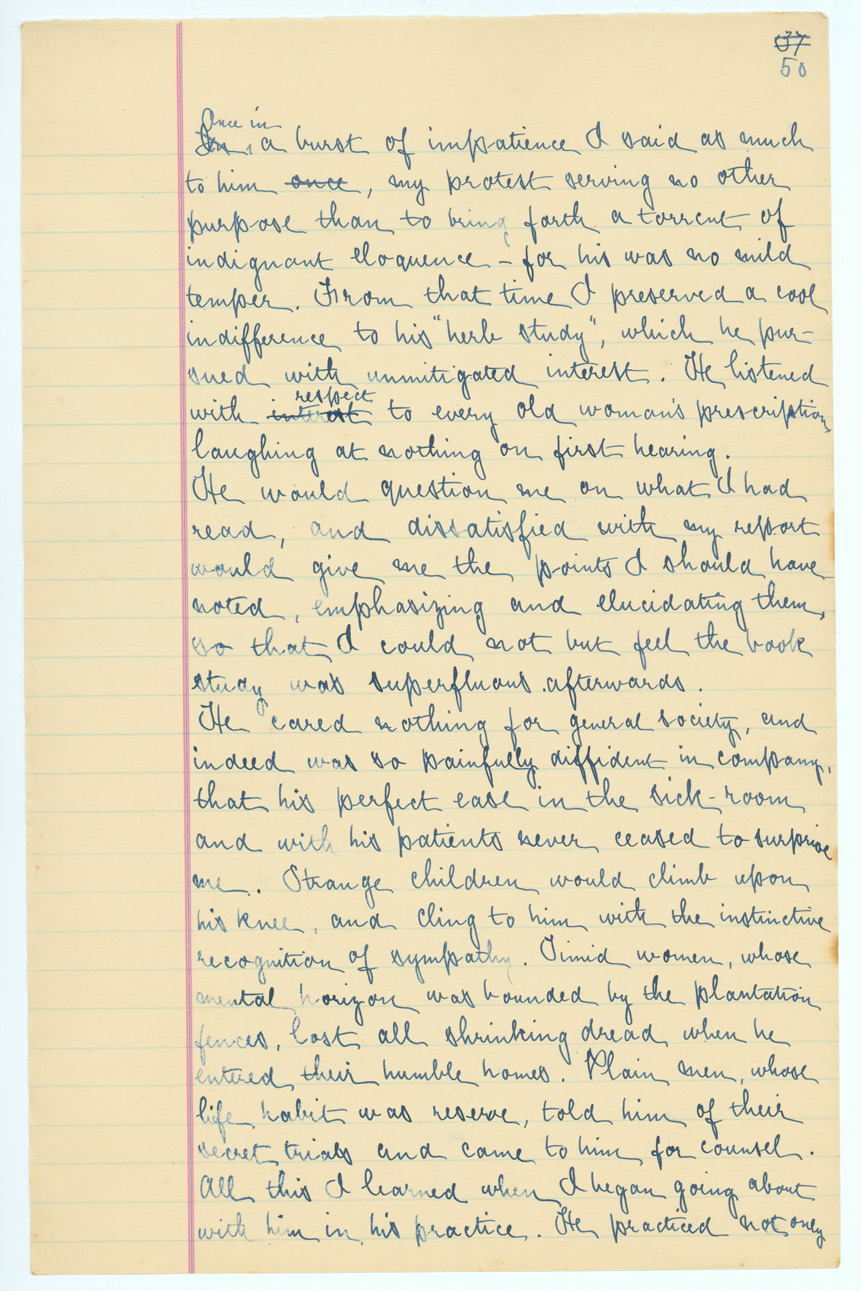 37
50
Once in
In, a burst of impatience I said as much
to him once, my protest serving no other
purpose than to bring forth a torrent of
indignant eloquence - for his was no mild
temper. From that time I preserved a cool
indifference to his "herb study", which he pur-
sued with unmitigated interest. He listened
respect
with interest to every old woman's prescription,
laughing at nothing on first hearing.
He would question me on what I had
read, and dissatisfied with my report
would give me the points I should have
noted, emphasizing and elucidating them,
so that I could not but feel the book
study was superfluous afterwards.
He cared nothing for general society, and
indeed was so painfully diffident in company,
that his perfect ease in the sick-room
and with his patients never ceased to surprise
me. Strange children would climb upon
his knee, and cling to him with the instinctive
recognition of sympathy. Timid women, whose
mental horizon was bounded by the plantation
fences, lost all shrinking dread when he
entered their humble homes. Plain men, whose
life habit was reserve, told him of their
secret trials and came to him for counsel.
All this I learned when I began going about
with him in his practice. He practiced not only